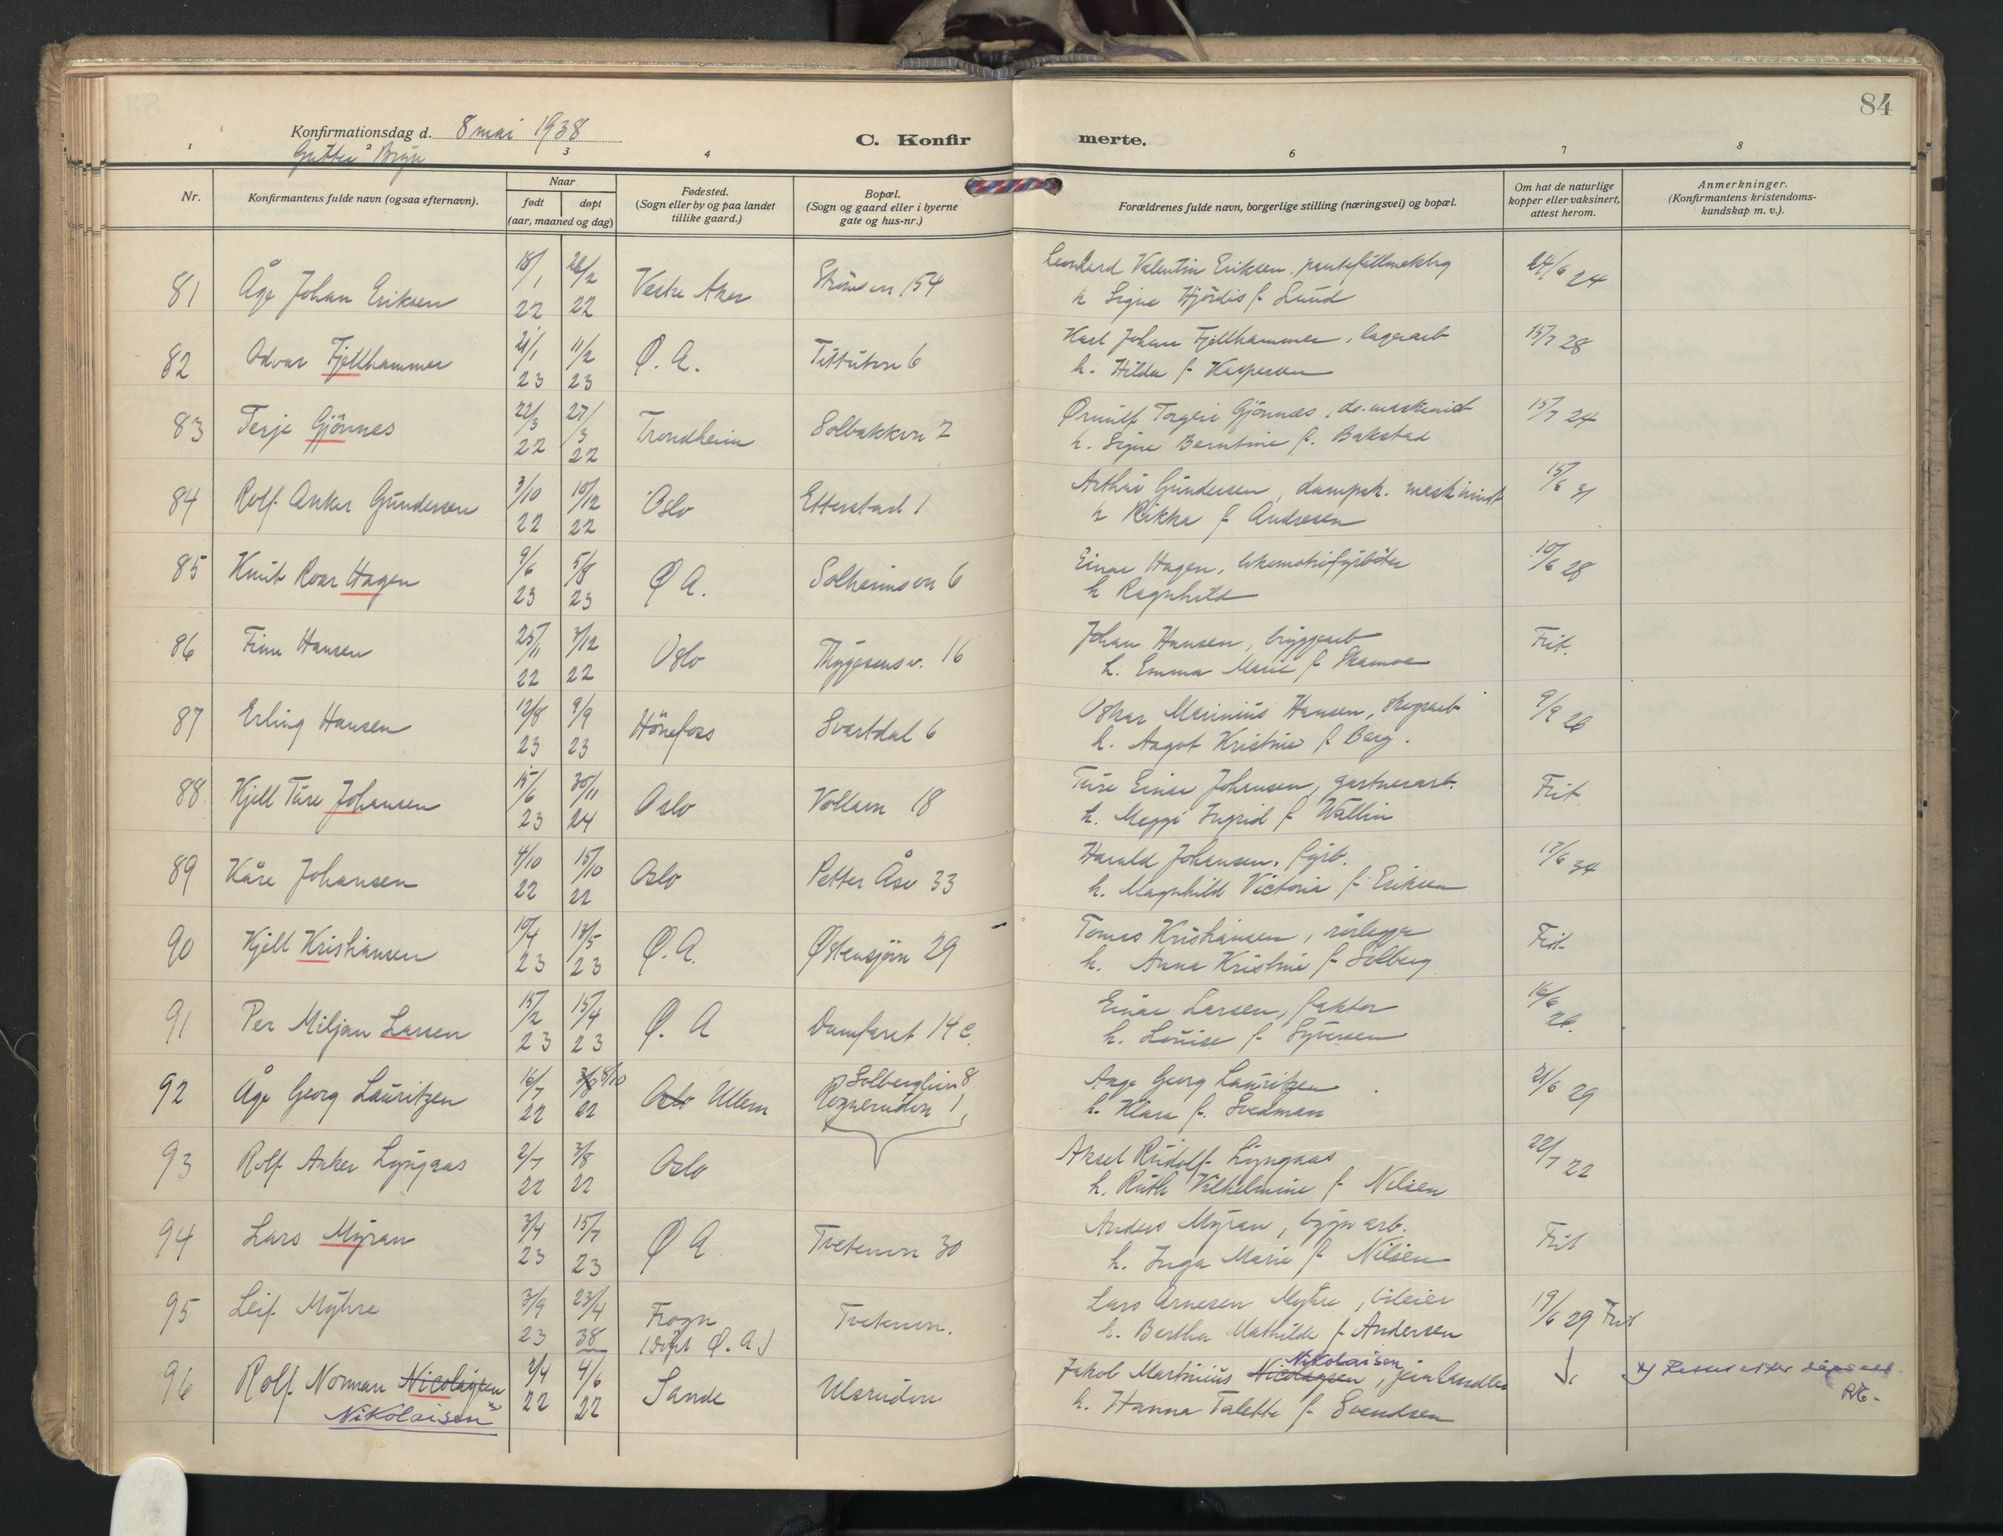 84
Konfirmationsdag d. 8 mai 1938
C. Konfir merte.
Gutter Bryn
1 2 3 4 6 7 8
Nr.
Konfirmantens fulde navn (ogsaa efternavn).
Naar
født døpt
(aar, maaned og dag)
Fødested.
(Sogn eller by og paa landet
tillike gaard.)
Bopæl.
(Sogn og gaard eller i byerne
gate og hus-nr.)
Forældrenes fulde navn, borgerlige stilling (næringsvei) og bopæl.
Om hat de naturlige
kopper eller vaksinert,
attest herom.
Anmerkninger.
(Konfirmantens kristendoms-
kundskap m. v.).
81 Åge Johan Eriksen 18/1 22 26/2 22 Vestre Aker 154 Leonhard Valentin Eriksen, 24/6 24
h Signe Hjördis f Lund
82 Odvar Fjellhammer 21/1 23 11/2 23 Ø. A. 6 Karl Johan Fjellhammer, lagerarb 15/7 28
h. Hilda f Kaspersen
83 Terje Gjönnes 22/3 22 27/3 22 Trondheim Solbakkvn 2 Ørnulf Torgeir Gjönnes, ds. maskinist 15/7 24
h. Signe Berntine f. Bakstad
84 Rolf Anker Gundersen 3/10 22 10/12 22 Oslo Etterstad 1 Arthur Gundersen, dampsk. maskinist 15/6 31
h Rikka f Andresen
85 Knut Roar Hagen 9/6 23 5/8 23 Ø A. Solheimsvn 6 Einar Hagen, lokomotivfyrböter 10/6 28
h Ragnhild
86 Finn Hansen 25/11 22 3/12 22 Oslo Thygesensv. 16 Johan Hansen, bryggearb Frit.
h. Emma Marie f Skamoe
87 Erling Hansen 12/8 23 9/9 23 Hönefoss Svartdal 6 Oskar Marinius Hansen, skogsarb 9/9 26
h. Aagot Kristine f Berg.
88 Kjell Ture Johansen 15/6 23 30/11 24 Oslo Vollavn 18 Ture Einar Johansen, gartnerarb. Frit.
h. Meggi Ingrid f Wallin
89 Kåre Johansen 4/10 22 15/10 22 Oslo Petter Åsv 33 Harald Johansen, fyrb. 17/6 34
h. Magnhild Victoria f Eriksen
90 Kjell Kristiansen 10/4 23 13/5 23 Ø. A. Östensjövn 29 Tomas Kristiansen, rörlegger Frit.
h. Anna Kristine f Solberg
91 Per Miljan Larsen 15/2 23 15/4 23 Ø. A Damfaret 14 c. Einar Larsen, faktor 16/6 26.
h. Louise f Syversen
92 Åge Georg Lauritzen 16/7 22 8/10 22 Oslo Ullern Solberglivn 8 Aage Georg Lauritzen 21/6 29
Rognerudvn 1, h. Klara f. Svedman
93 Rolf Anker Lyngaas 2/7 22 3/8 22 Oslo Aksel Rudolf Lyngaas 22/7 22
h. Ruth Vilhelmine f Nilsen
94 Lars Myran 3/4 23 15/7 23 Ø A. Tvetenvn 30 Anders Myran, bygn arb. Frit
h. Inga Marie f Nilsen
95 Leif Myhre 3/9 23 23/4 38 Frogn Tvetenvn. Lars Arnesen Myhre, bileier 19/6 29 Frit
(döpt Ø. A) h. Bertha Mathilde f Andersen
96 Rolf Norman Nicolaysen 2/4 22 4/6 22 Sande Ulsrudvn Jakob Martinius Nicolaysen,
Nikolaisen
Nikolaisen h. Hanna Talette f Svendsen
x) Rettet efter dåpsatt.